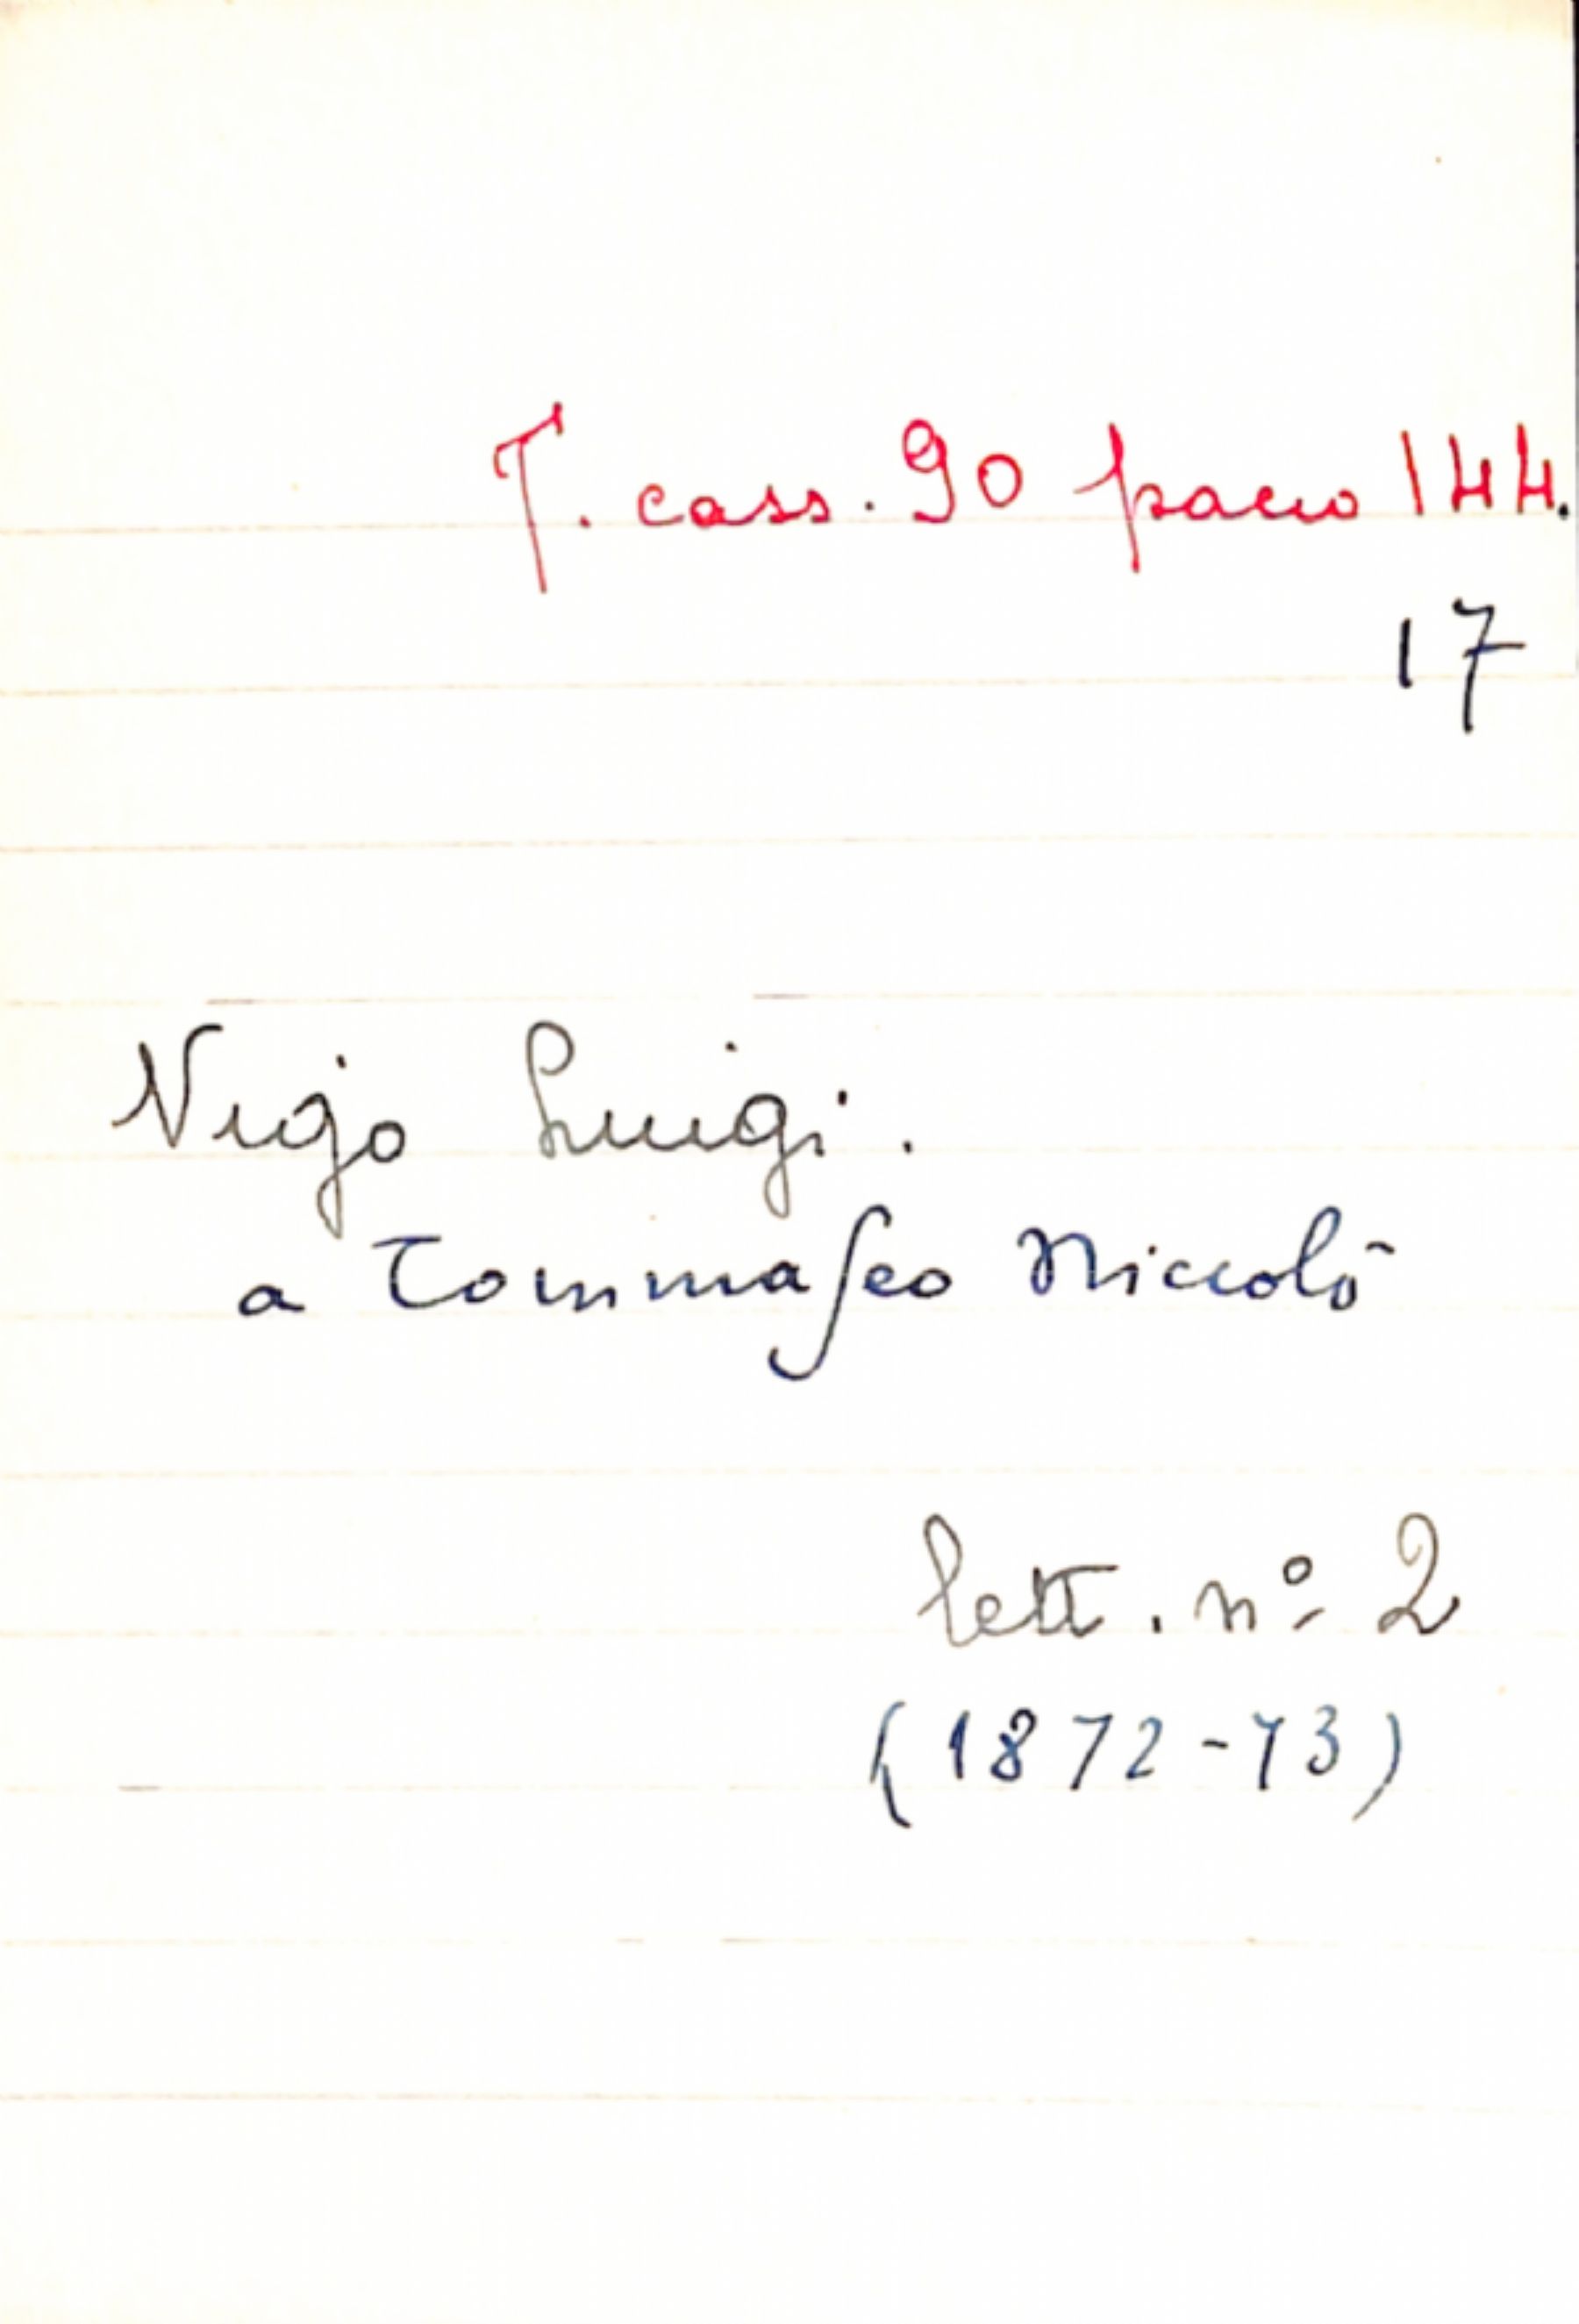 T. cass. 90 pacco 144.
17
Vigo Luigi.
a Tommaseo Niccolò
lett. nº 2
(1872-73)